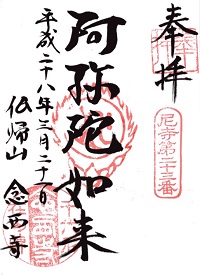 奉拝
尼寺第二十三番
阿弥陀如来
平成二十八年三月二十一日
仏帰山
念西寺